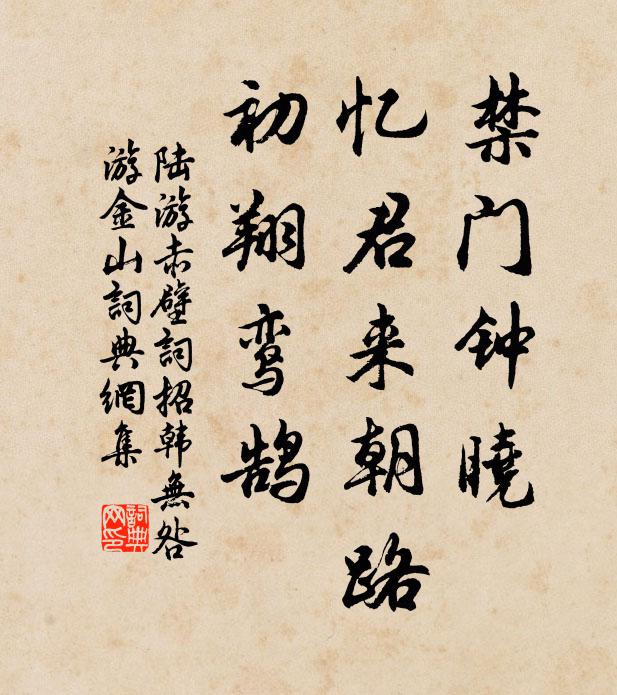 禁门钟晓
忆君来朝路
初翔鸾鹄
陆游赤壁詞招韩無咎
游金山詞典網集
詞典
网印